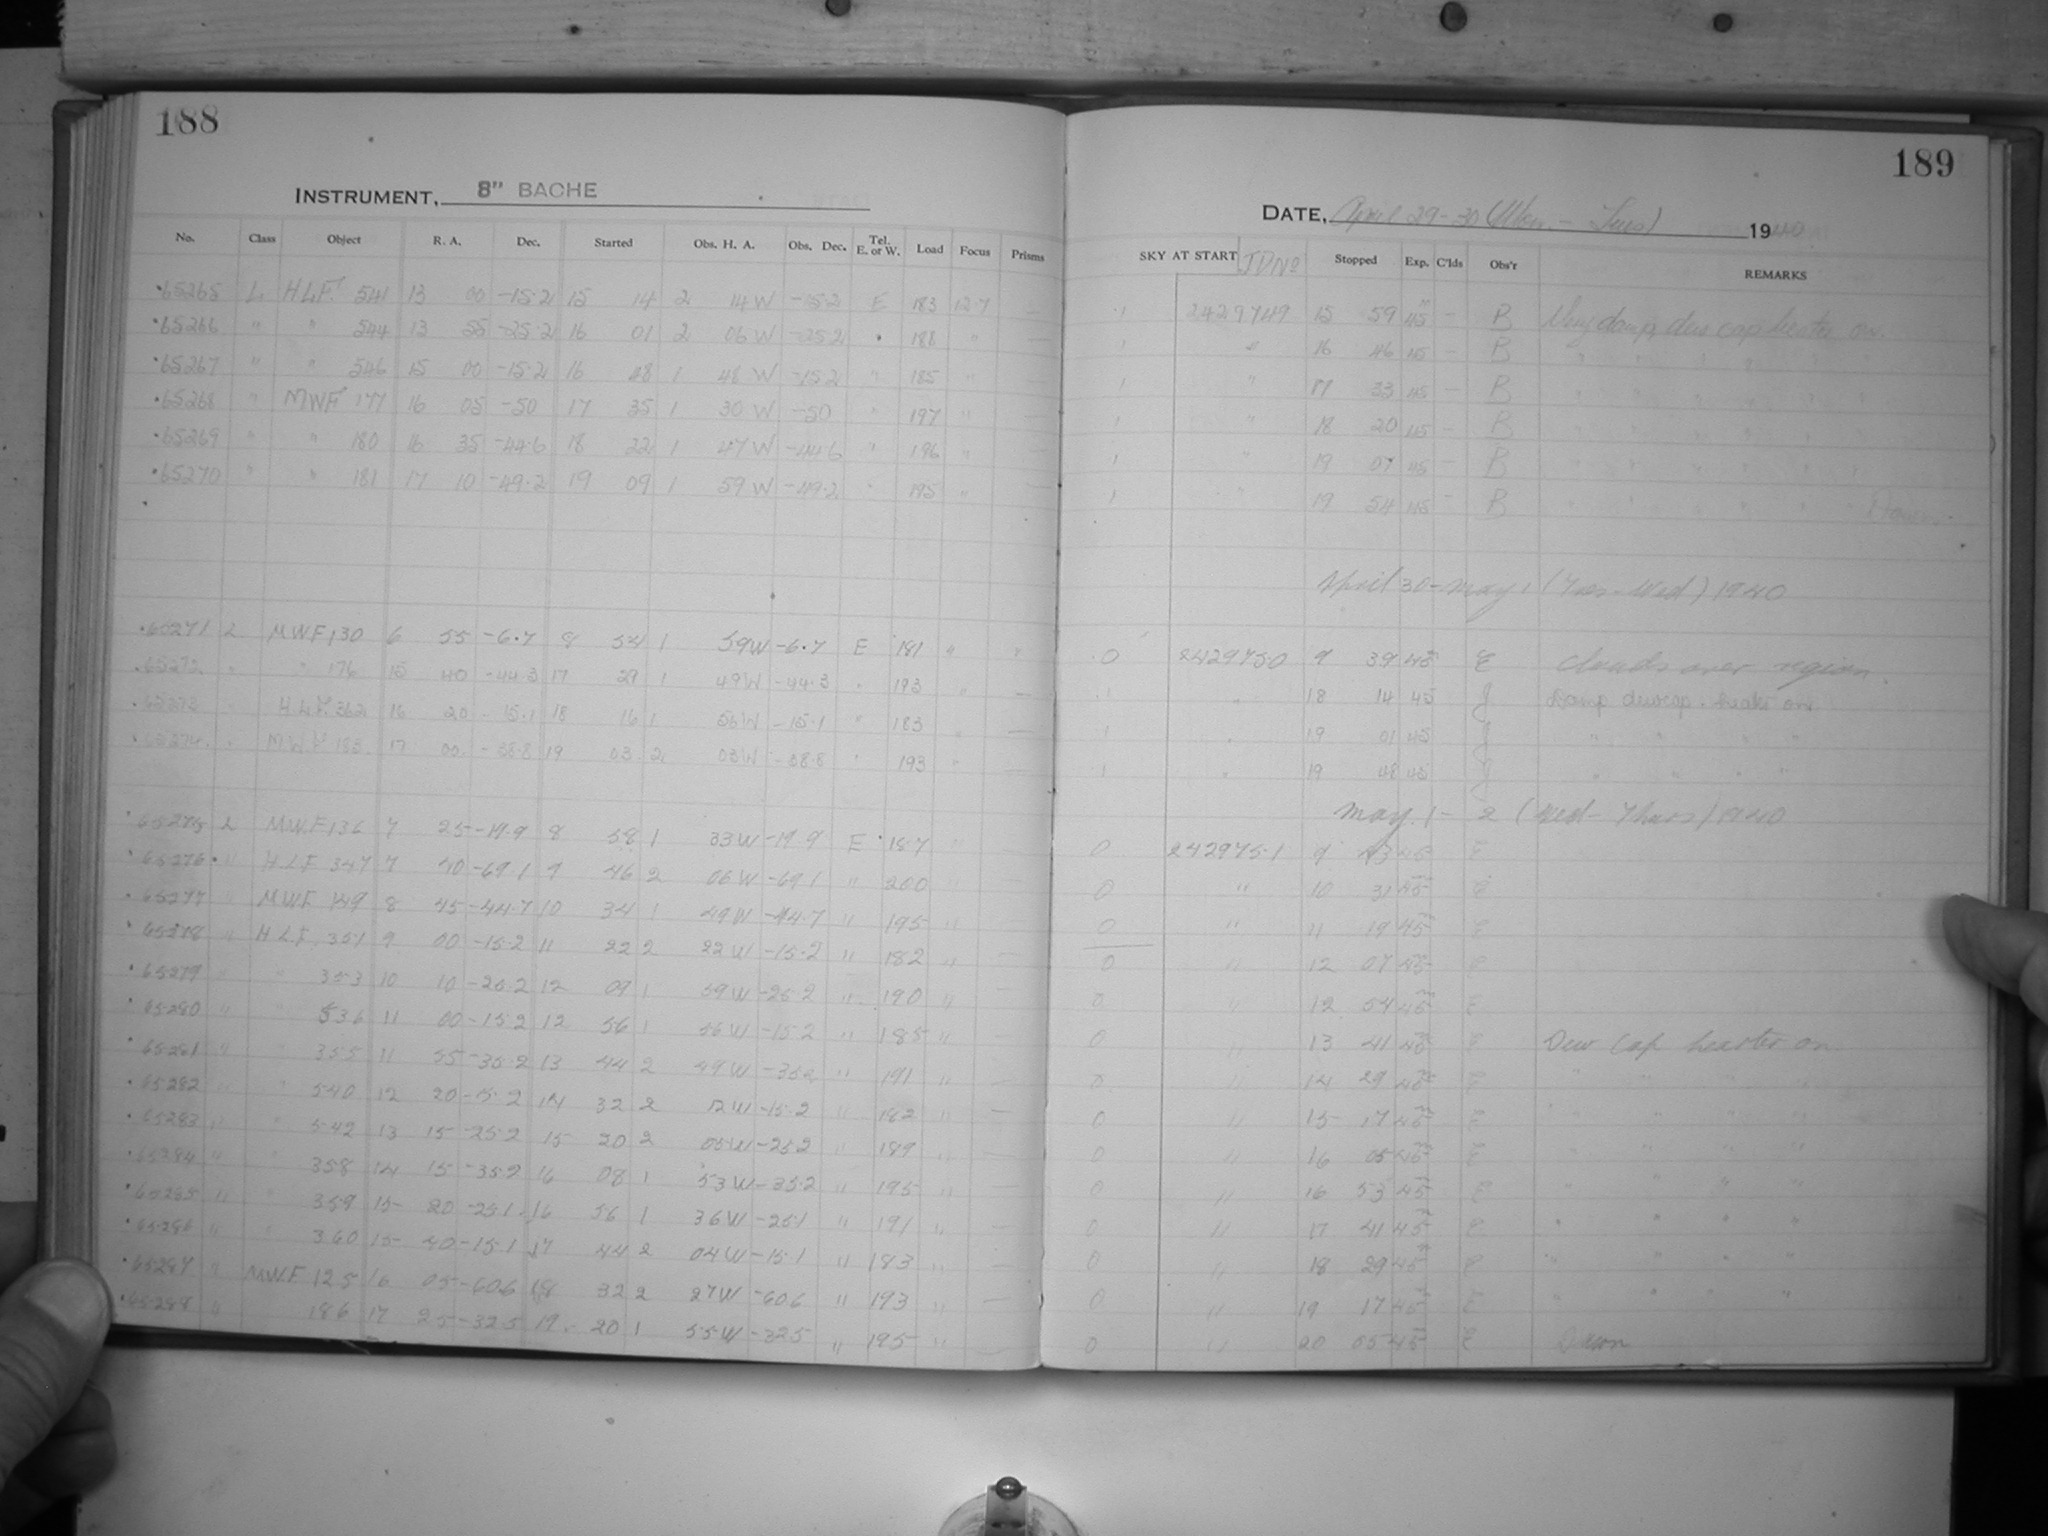 188
INSTRUMENT, 8" BACHE
No. Class Object R. A. Dec. Started Obs. H. A. Obs. Dec. Tel. E. or W. Load Focus Prisms
65265 L HLF 541 13 00 -15.2 15 14 2 14 W -15.2 E 183 12.7 —
65266 " " 544 13 55 -25.2 16 01 2 06 W -25.2 " 188 " —
65267 " " 546 15 00 -15.2 16 48 1 48 W -15.2 " 185 " —
65268 " MWF 177 16 05 -50 17 35 1 30 W -50 " 197 " —
65269 " " 180 16 35 -44.6 18 22 1 47 W -44.6 " 196 " —
65270 " " 181 17 10 -49.2 19 09 1 59 W -49.2 " 195 " —
65271 L MWF 130 6 55 -6.7 8 54 1 59W -6.7 E 181 " "
65272 " " 176 15 40 -44.3 17 29 1 49W -44.3 " 193 " —
65273 " HLF 362 16 20 -15.1 18 16 1 56W -15.1 " 183 " —
65274 " MWF 183 17 00 -38.8 19 03 2 03W -38.8 " 193 " —
65275 L MWF 136 7 25 -19.9 8 58 1 33W -19.9 E 187 " —
65276 " HLF 347 7 40 -69.1 9 46 2 06W -69.1 " 200 " —
65277 " MWF 149 8 45 -44.7 10 34 1 49W -44.7 " 195 " —
65278 " HLF 351 9 00 -15.2 11 22 2 22W -15.2 " 182 " —
65279 " " 353 10 10 -25.2 12 09 1 59W -25.2 " 190 " —
65280 " " 536 11 00 -15.2 12 56 1 56W -15.2 " 185 " —
65281 " " 355 11 55 -35.2 13 44 2 49W -35.2 " 191 " —
65282 " " 540 12 20 -15.2 14 32 2 12W -15.2 " 182 " —
65283 " " 542 13 15 -25.2 15 20 2 05W -25.2 " 189 " —
65284 " " 358 14 15 -35.2 16 08 1 53W -35.2 " 195 " —
65285 " " 359 15 20 -25.1 16 56 1 36W -25.1 " 191 " —
65286 " " 360 15 40 -15.1 17 44 2 04W -15.1 " 183 " —
65287 " MWF 125 16 05 -60.6 18 32 2 27W -60.6 " 193 " —
65288 " 186 17 25 -32.5 19 20 1 55W -32.5 " 195 "
189
DATE, April 29-30 (Mon. - Tues) 1940
SKY AT START JD No Stopped Exp. C'lds Obs'r REMARKS
1 2429749 15 59 45 — B Very damp, dew cap heater on.
1 " 16 46 45 — B " " " " "
1 " 17 33 45 — B " " " " "
1 " 18 20 45 — B " " " " "
1 " 19 07 45 — B " " " " "
1 " 19 54 45 — B " " " " " Dawn
April 30 - May 1 (Tues - Wed) 1940
0 2429750 9 39 45 E Clouds over region.
1 " 18 14 45 J Damp dewcap heater on
1 " 19 01 45 J " " " "
1 " 19 48 45 J " " " "
May 1 - 2 (Wed - Thurs) 1940
0 2429751 9 43 45 E
0 " 10 31 45 E
0 " 11 19 45 E
0 " 12 07 45 E
0 " 12 54 45 E
0 " 13 41 45 E Dew cap heater on
0 " 14 29 45 E " " " "
0 " 15 17 45 E " " " "
0 " 16 05 45 E " " " "
0 " 16 53 45 E " " " "
0 " 17 41 45 E " " " "
0 " 18 29 45 E " " " "
0 " 19 17 45 E " " " "
0 " 20 05 45 E Dawn